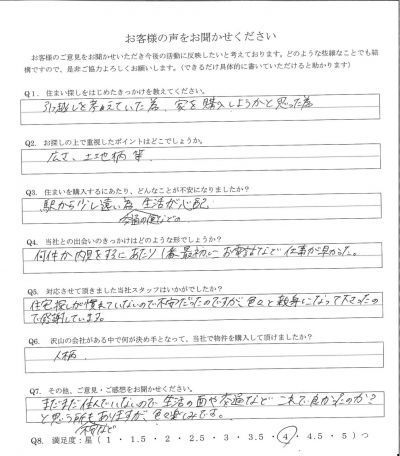 お客様の声をお聞かせください
お客様のご意見をお聞かせいただき今後の活動に反映したいと考えております。どのような些細なことでも結
構ですので、是非ご協力よろしくお願いします。(できるだけ具体的に書いていただけると助かります)
Q1. 住まい探しをはじめたきっかけを教えてください。
引っ越しを考えていた為、家を購入しようかと思った為
Q2. お探しの上で重視したポイントはどこでしょうか。
広さ、土地柄 等
Q3. 住まいを購入するにあたり、どんなことが不安になりましたか?
駅から少し遠い為 生活が心配
交通の便などの
Q4. 当社との出会いのきっかけはどのような形でしょうか?
何件か内見をするにあたり1番最初に お電話など 仕事が早かった。
Q5. 対応させて頂きました当社スタッフはいかがでしたか?
住宅探しが慣れていないので不安だったのですが、色々と親身になって下さったの
で感謝しています。
Q6. 沢山の会社がある中で何が決め手となって、当社で物件を購入して頂けましたか?
人柄
Q7. その他、ご意見・ご感想をお聞かせください。
まだまだ住んでいないので 生活の面や交通など これで良かったのか?
と思う所もありますが、色々楽しみです。
不安など
Q8. 満足度:星(1・1.5・2・2.5・3・3.5・4・4.5・5)つ